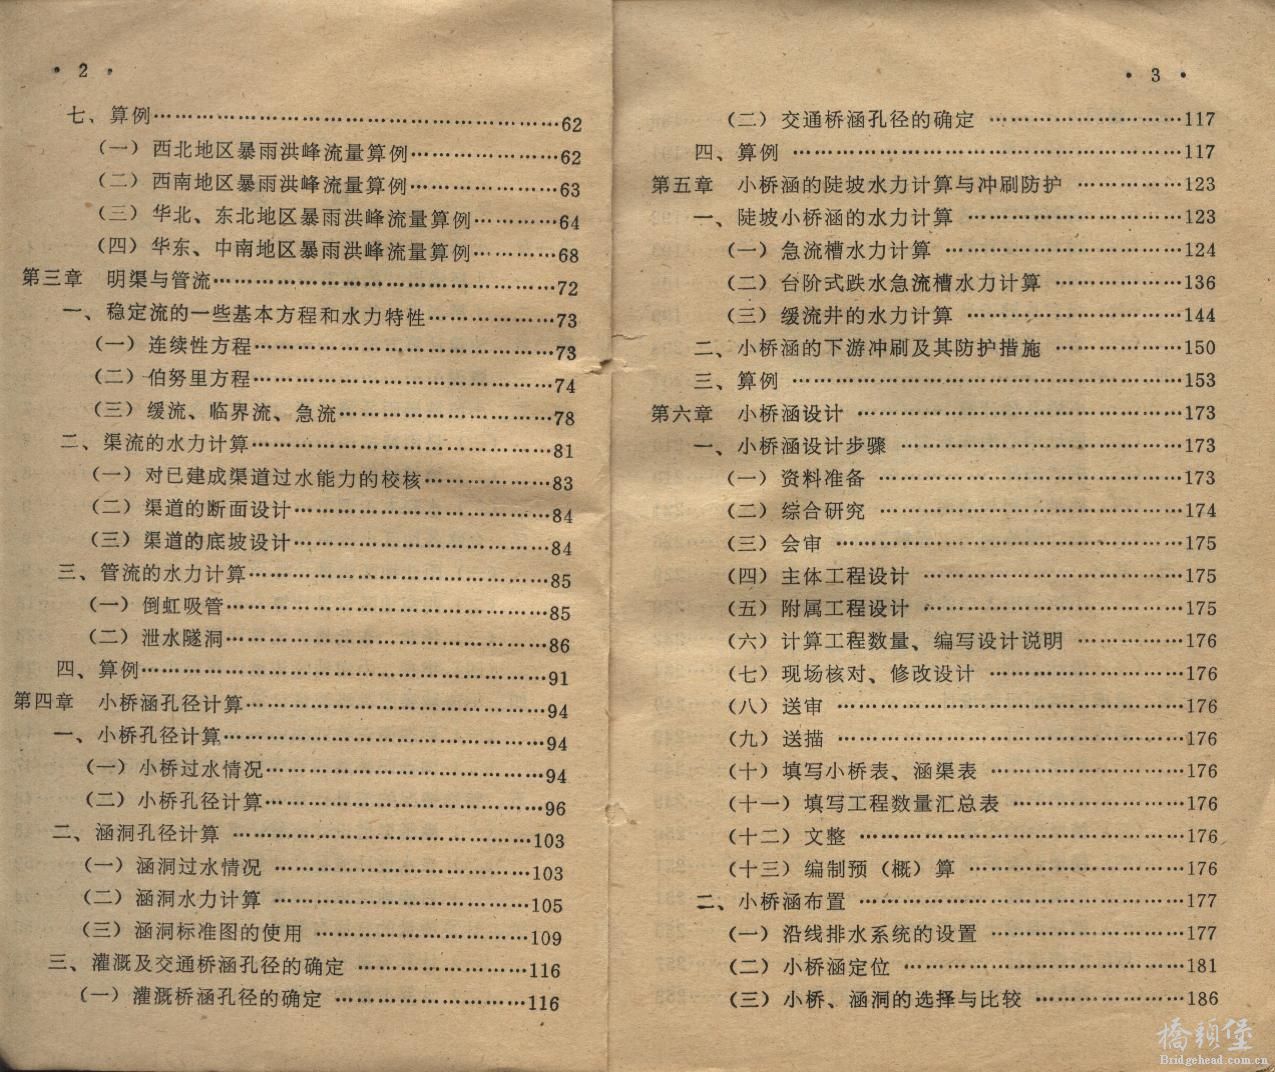 • 2 •
七、算例……62
（一）西北地区暴雨洪峰流量算例……62
（二）西南地区暴雨洪峰流量算例……63
（三）华北、东北地区暴雨洪峰流量算例……64
（四）华东、中南地区暴雨洪峰流量算例……68
第三章 明渠与管流……72
一、稳定流的一些基本方程和水力特性……73
（一）连续性方程……73
（二）伯努里方程……74
（三）缓流、临界流、急流……78
二、渠流的水力计算……81
（一）对已建成渠道过水能力的校核……83
（二）渠道的断面设计……84
（三）渠道的底坡设计……84
三、管流的水力计算……85
（一）倒虹吸管……85
（二）泄水隧洞……86
四、算例……91
第四章 小桥涵孔径计算……94
一、小桥孔径计算……94
（一）小桥过水情况……94
（二）小桥孔径计算……96
二、涵洞孔径计算……103
（一）涵洞过水情况……103
（二）涵洞水力计算……105
（三）涵洞标准图的使用……109
三、灌溉及交通桥涵孔径的确定……116
（一）灌溉桥涵孔径的确定……116
• 3 •
（二）交通桥涵孔径的确定……117
四、算例……117
第五章 小桥涵的陡坡水力计算与冲刷防护……123
一、陡坡小桥涵的水力计算……123
（一）急流槽水力计算……124
（二）台阶式跌水急流槽水力计算……136
（三）缓流井的水力计算……144
二、小桥涵的下游冲刷及其防护措施……150
三、算例……153
第六章 小桥涵设计……173
一、小桥涵设计步骤……173
（一）资料准备……173
（二）综合研究……174
（三）会审……175
（四）主体工程设计……175
（五）附属工程设计……175
（六）计算工程数量、编写设计说明……176
（七）现场核对、修改设计……176
（八）送审……176
（九）送描……176
（十）填写小桥表、涵渠表……176
（十一）填写工程数量汇总表……176
（十二）文整……176
（十三）编制预（概）算……176
二、小桥涵布置……177
（一）沿线排水系统的设置……177
（二）小桥涵定位……181
（三）小桥、涵洞的选择与比较……186
橋頭堡
Bridgehead.com.cn